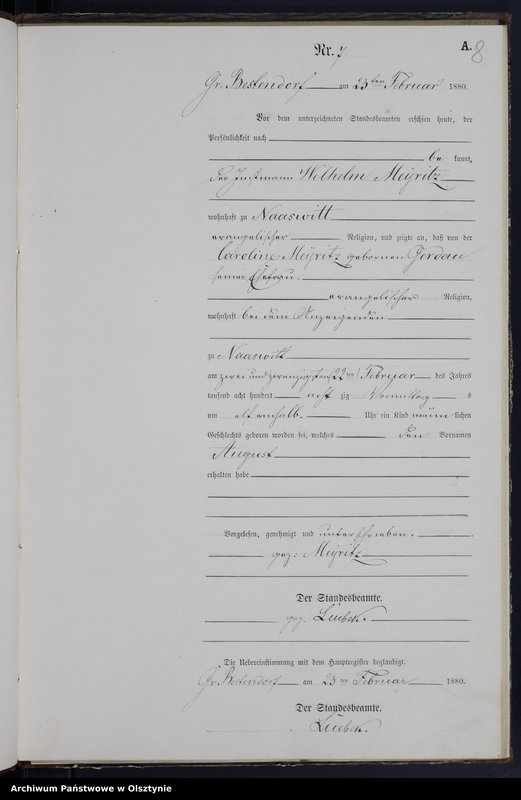 Nr. 7
A.
8
Gr. Bestendorf am 23ten Februar 1880.
Vor dem unterzeichneten Standesbeamten erschien heute, der
Persönlichkeit nach
be kannt,
der Instmann Wilhelm Meÿritz
wohnhaft zu Naaswitt
evangelischer Religion, und zeigte an, daß von der
Caroline Meÿritz gebornen Jordan
seiner Ehefrau.
evangelischer Religion,
wohnhaft bei dem Anzeigenden
zu Naaswitt
am zwei und zwanzigsten (22ten) Februar des Jahres
tausend acht hundert acht zig Vormittag s
um elf einhalb Uhr ein Kind männ lichen
Geschlechts geboren worden sei, welches den Vornamen
August
erhalten habe
Vorgelesen, genehmigt und unterschrieben.
gez: Meÿritz
Der Standesbeamte.
gez. Lübeck.
Die Uebereinstimmung mit dem Hauptregister beglaubigt.
Gr. Bestendorf am 23ten Februar 1880.
Der Standesbeamte.
Lübeck.
Archiwum Państwowe w Olsztynie